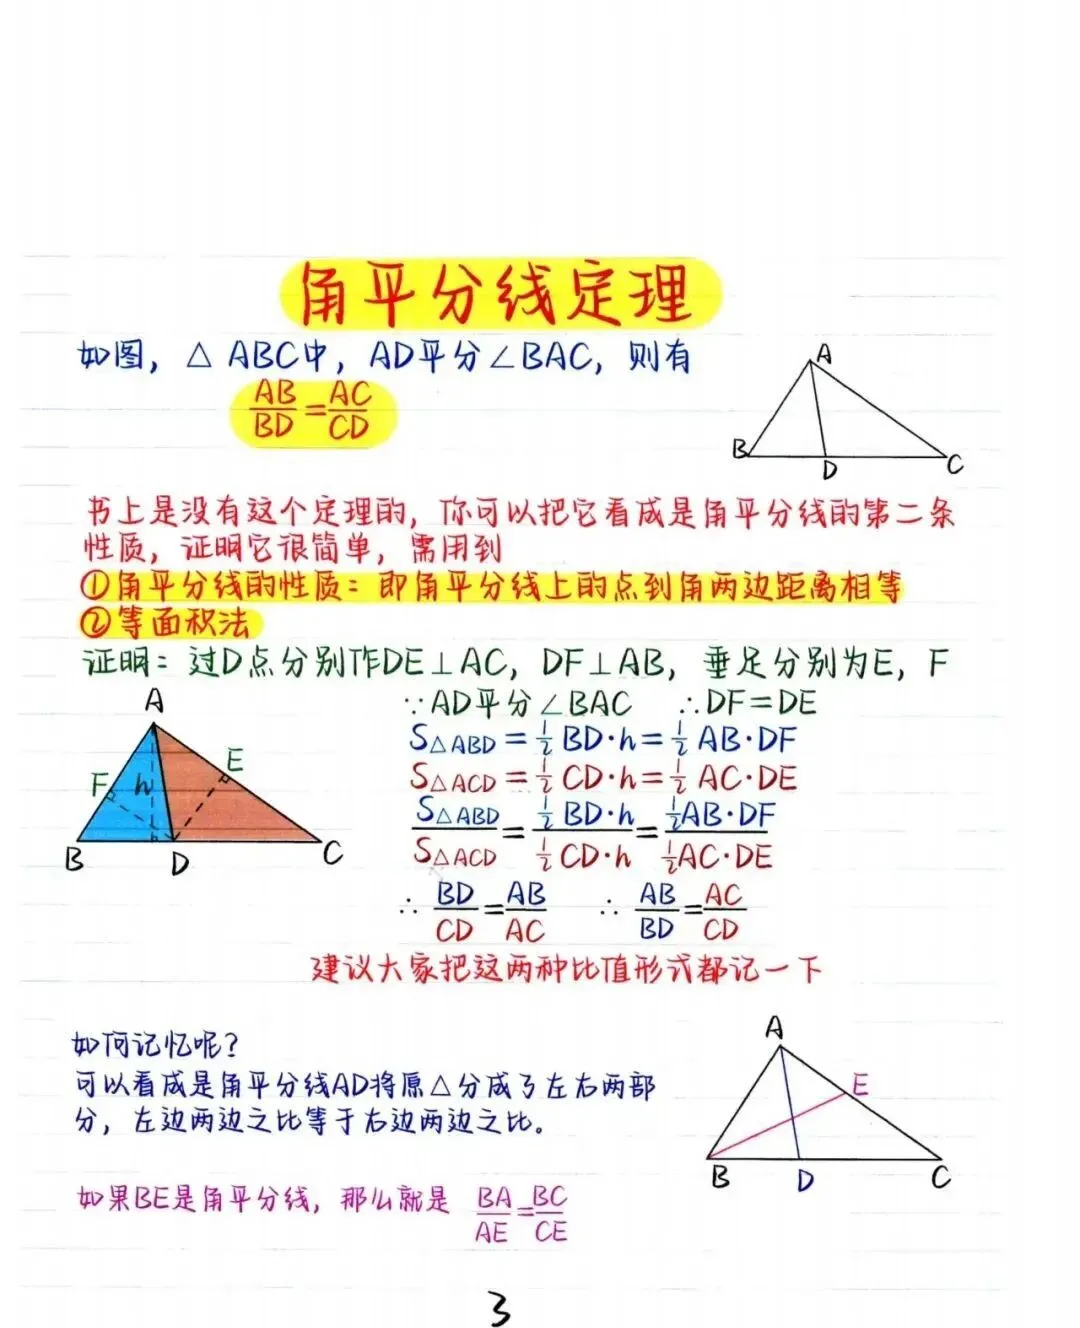 角平分线定理
如图，△ABC中，AD平分∠BAC，则有
AB/BD=AC/CD
A
B
D
C
书上是没有这个定理的，你可以把它看成是角平分线的第二条
性质，证明它很简单，需用到
①角平分线的性质：即角平分线上的点到角两边距离相等
②等面积法
证明：过D点分别作DE⊥AC，DF⊥AB，垂足分别为E，F
∵AD平分∠BAC ∴DF=DE
S△ABD=½BD·h=½AB·DF
S△ACD=½CD·h=½AC·DE
S△ABD/S△ACD=½BD·h/½CD·h=½AB·DF/½AC·DE
∴BD/CD=AB/AC ∴AB/BD=AC/CD
A
E
F
h
B
D
C
建议大家把这两种比值形式都记一下
如何记忆呢？
可以看成是角平分线AD将原△分成了左右两部
分，左边两边之比等于右边两边之比。
A
E
B
D
C
如果BE是角平分线，那么就是 BA/AE=BC/CE
3